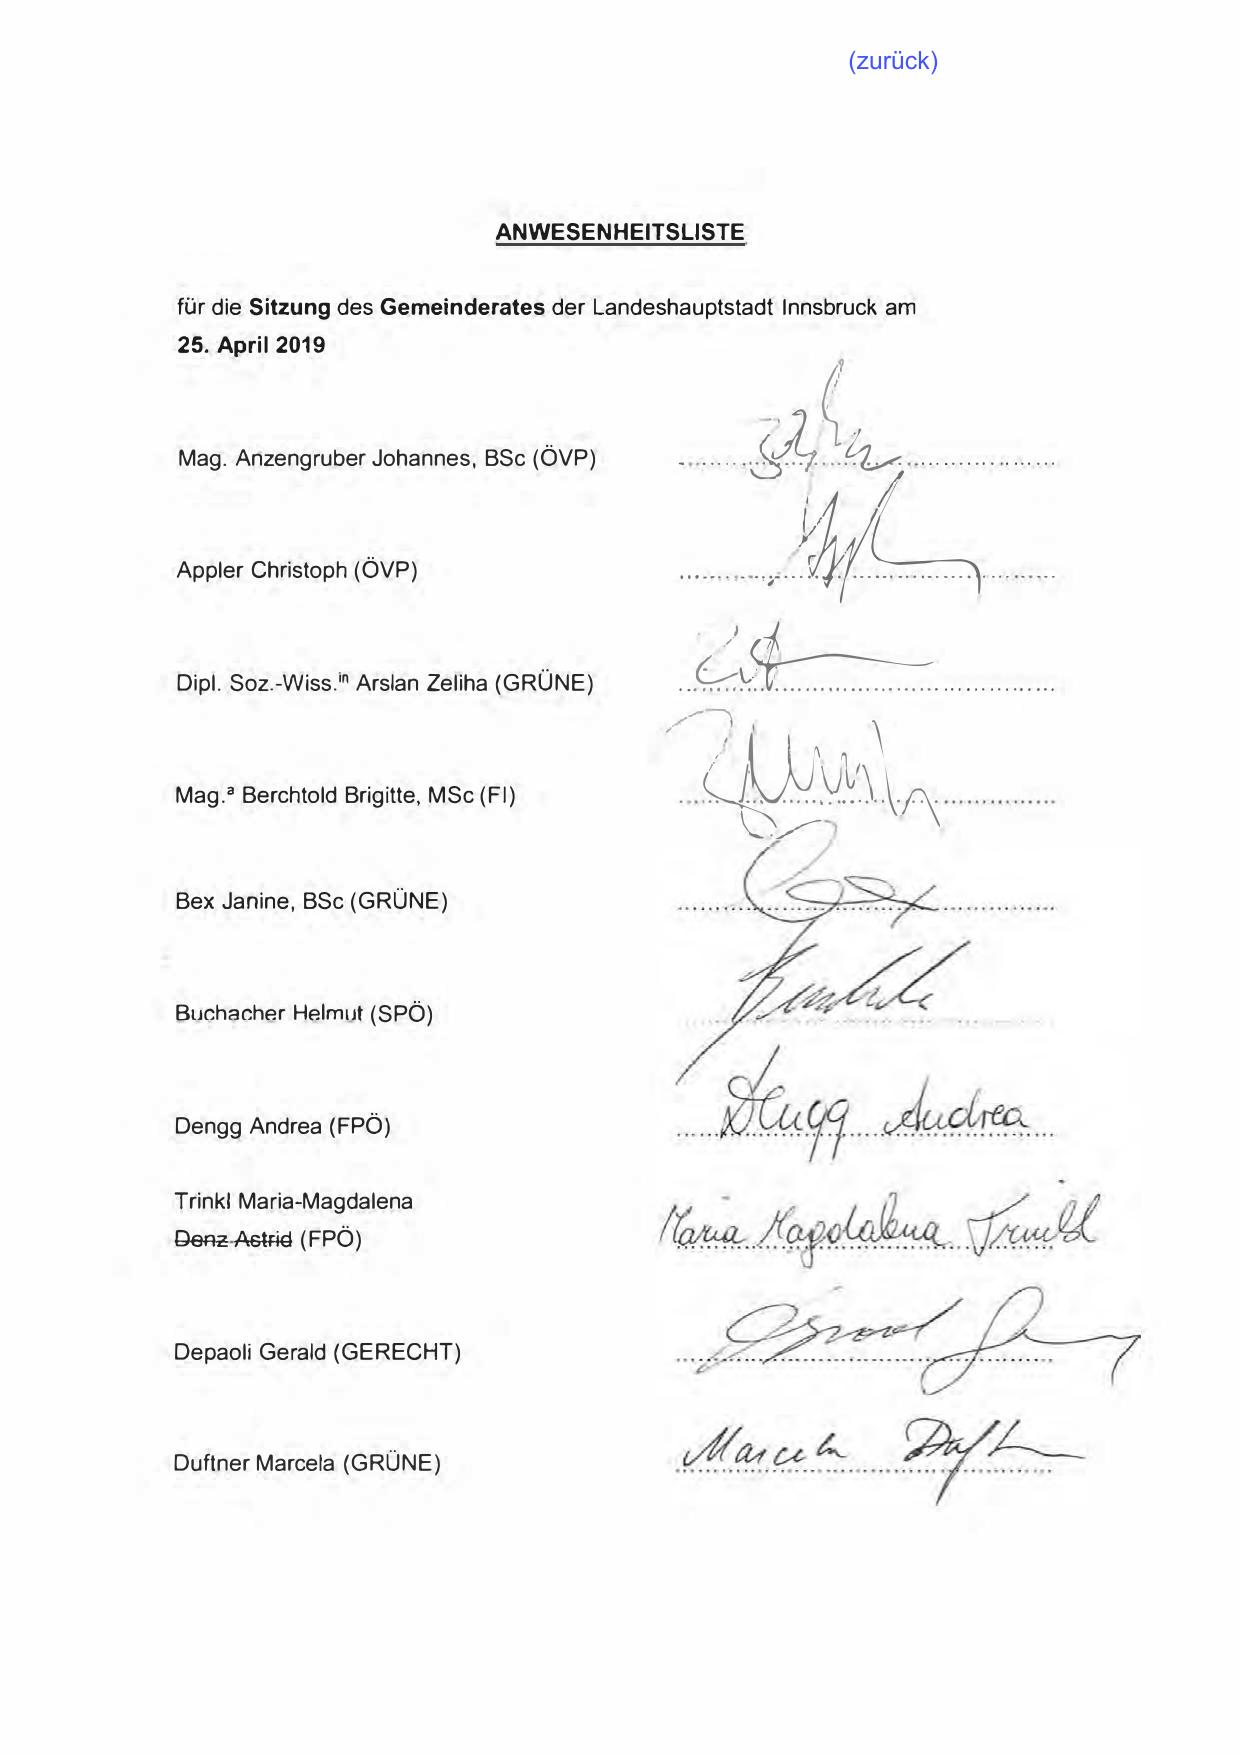 (zurück)
ANWESENHEITSLISTE
für die Sitzung des Gemeinderates der Landeshauptstadt Innsbruck am
25. April 2019
Mag. Anzengruber Johannes, BSc (ÖVP)
Appler Christoph (ÖVP)
Dipl. Soz.-Wiss.in Arslan Zeliha (GRÜNE)
Mag.a Berchtold Brigitte, MSc (FI)
Bex Janine, BSc (GRÜNE)
Bex
Buchacher Helmut (SPÖ)
Dengg Andrea (FPÖ)
Dengg Andrea
Trinkl Maria-Magdalena
Maria Magdalena Trinkl
Denz Astrid (FPÖ)
Depaoli Gerald (GERECHT)
Duftner Marcela (GRÜNE)
Marcela Duft